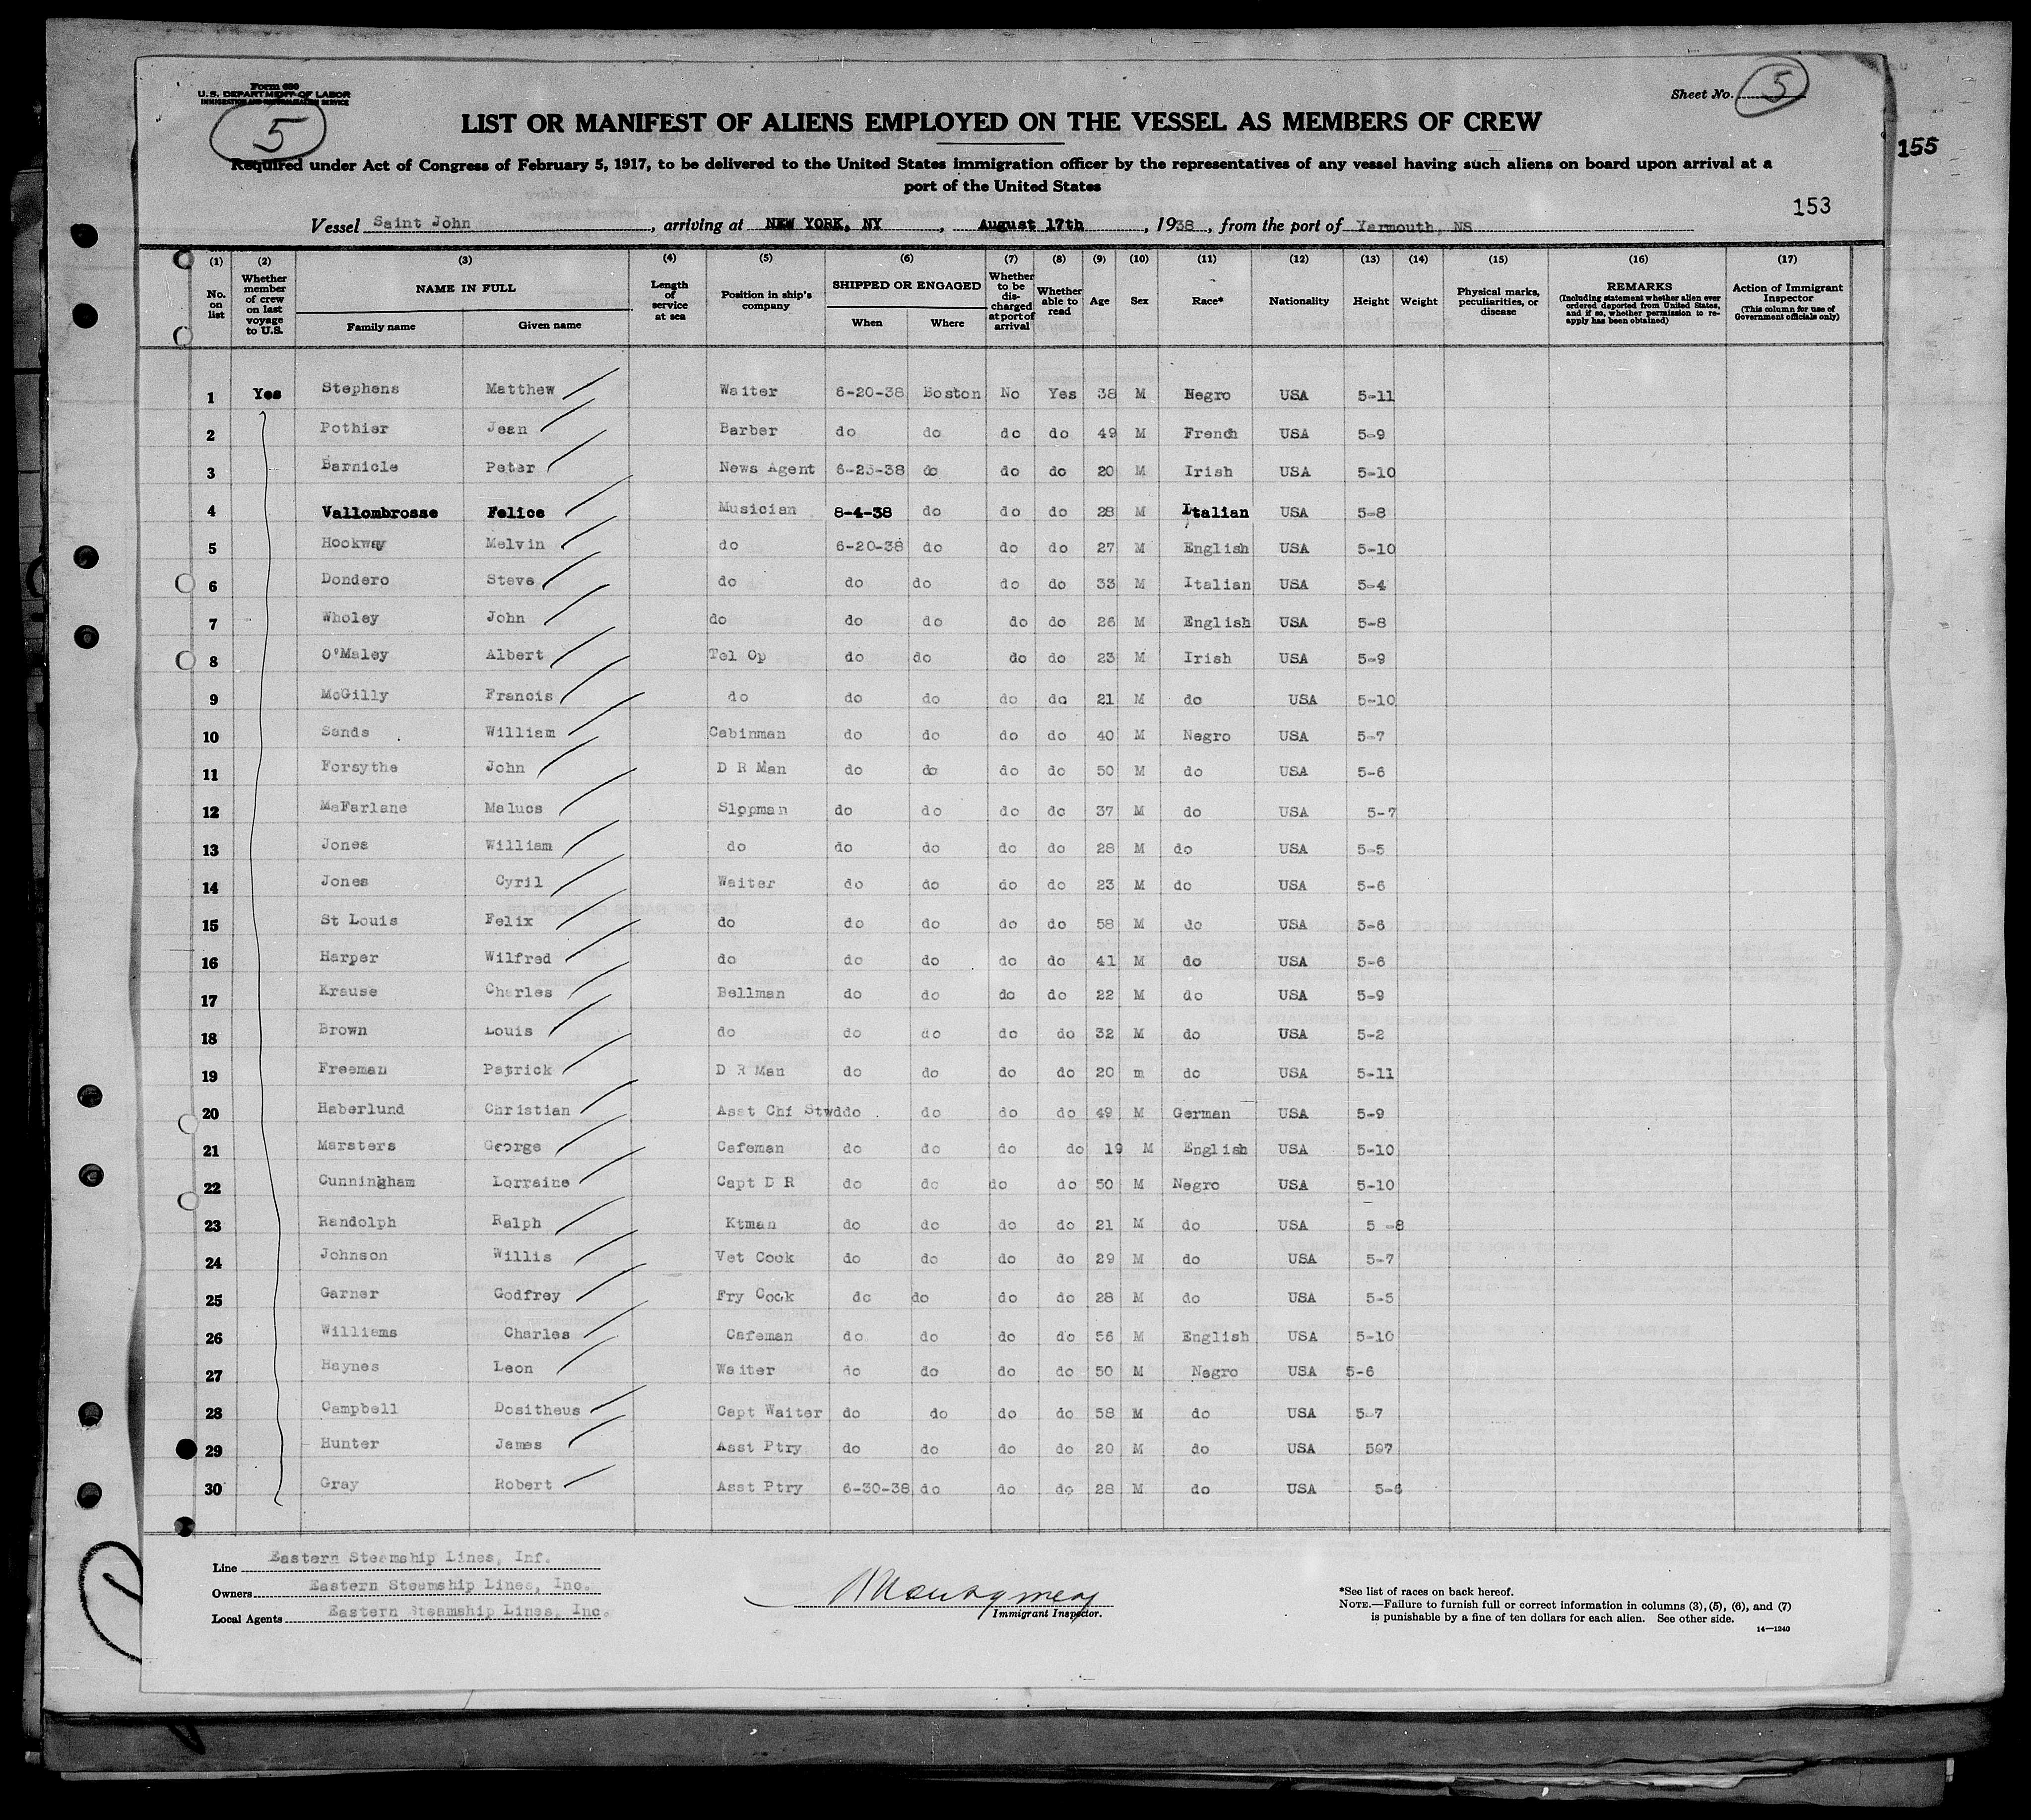 Form 680
U. S. DEPARTMENT OF LABOR
IMMIGRATION AND NATURALIZATION SERVICE
5
Sheet No. 5
LIST OR MANIFEST OF ALIENS EMPLOYED ON THE VESSEL AS MEMBERS OF CREW
155
Required under Act of Congress of February 5, 1917, to be delivered to the United States immigration officer by the representatives of any vessel having such aliens on board upon arrival at a
port of the United States
153
Vessel Saint John, arriving at NEW YORK, NY, August 17th, 1938, from the port of Yarmouth, NS
(1) (2) (3) (4) (5) (6) (7) (8) (9) (10) (11) (12) (13) (14) (15) (16) (17)
No. on list Whether member of crew on last voyage to U.S. NAME IN FULL Family name Given name Length of service at sea Position in ship's company SHIPPED OR ENGAGED When Where Whether to be discharged at port of arrival Whether able to read Age Sex Race* Nationality Height Weight Physical marks, peculiarities, or disease REMARKS (Including statement whether alien ever ordered deported from United States, and if so, whether permission to re-apply has been obtained) Action of Immigrant Inspector (This column for use of Government officials only)
1 Yes Stephens Matthew Waiter 6-20-38 Boston No Yes 38 M Negro USA 5-11
2 Pothier Jean Barber do do do do 49 M French USA 5-9
3 Barnicle Peter News Agent 6-23-38 do do do 20 M Irish USA 5-10
4 Vallombrosse Felice Musician 8-4-38 do do do 28 M Italian USA 5-8
5 Hookway Melvin do 6-20-38 do do do 27 M English USA 5-10
6 Dondero Steve do do do do do 33 M Italian USA 5-4
7 Wholey John do do do do do 26 M English USA 5-8
8 O'Maley Albert Tel Op do do do do 23 M Irish USA 5-9
9 McGilly Francis do do do do do 21 M do USA 5-10
10 Sands William Cabinman do do do do 40 M Negro USA 5-7
11 Forsythe John D R Man do do do do 50 M do USA 5-6
12 MaFarlane Malucs Slopman do do do do 37 M do USA 5-7
13 Jones William do do do do do 28 M do USA 5-5
14 Jones Cyril Waiter do do do do 23 M do USA 5-6
15 St Louis Felix do do do do do 58 M do USA 5-6
16 Harper Wilfred do do do do do 41 M do USA 5-6
17 Krause Charles Bellman do do do do 22 M do USA 5-9
18 Brown Louis do do do do do 32 M do USA 5-2
19 Freeman Patrick D R Man do do do do 20 m do USA 5-11
20 Haberlund Christian Asst Chf Stwd do do do do 49 M German USA 5-9
21 Marsters George Cafeman do do do do 19 M English USA 5-10
22 Cunningham Lorraine Capt D R do do do do 50 M Negro USA 5-10
23 Randolph Ralph Ktman do do do do 21 M do USA 5 -8
24 Johnson Willis Vet Cook do do do do 29 M do USA 5-7
25 Garner Godfrey Fry Cook do do do do 28 M do USA 5-5
26 Williams Charles Cafeman do do do do 56 M English USA 5-10
27 Haynes Leon Waiter do do do do 50 M Negro USA 5-6
28 Campbell Dositheus Capt Waiter do do do do 58 M do USA 5-7
29 Hunter James Asst Ptry do do do do 20 M do USA 507
30 Gray Robert Asst Ptry 6-30-38 do do do 28 M do USA 5-6
Line Eastern Steamship Lines, Inf.
Owners Eastern Steamship Lines, Inc.
Local Agents Eastern Steamship Lines, Inc.
Montgomery
Immigrant Inspector.
*See list of races on back hereof.
NOTE.—Failure to furnish full or correct information in columns (3), (5), (6), and (7)
is punishable by a fine of ten dollars for each alien. See other side.
14—1240